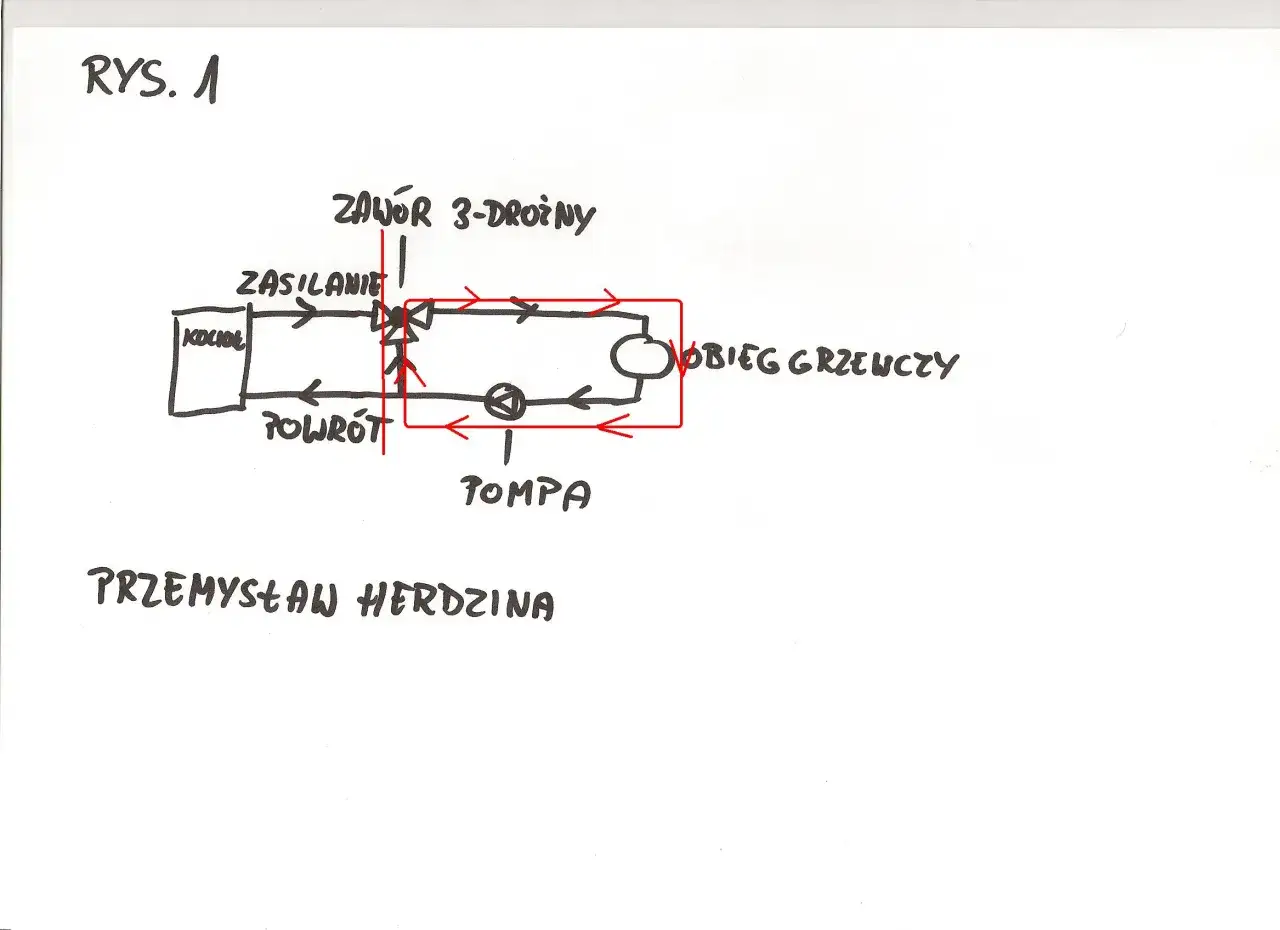 RYS. 1
ZAWÓR 3-DROŻNY
ZASILANIE
KOCIOŁ
OBIEG GRZEWCZY
POWRÓT
POMPA
PRZEMYSŁAW HERDZINA